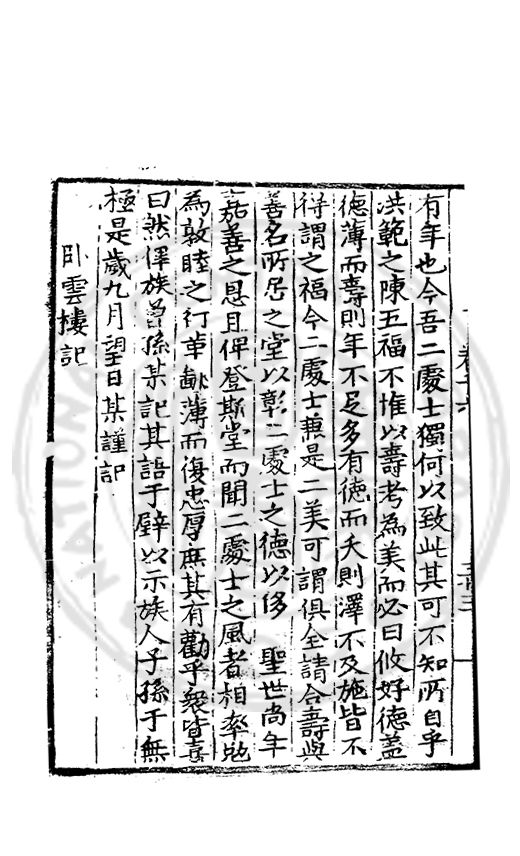 有年也今吾二處士獨何以致此其可不知所自乎
洪範之陳五福不惟以壽考為美而必曰攸好德蓋
德薄而壽則年不足多有德而夭則澤不及施皆不
得謂之福今二處士兼是二美可謂俱全請合壽與
善名所居之堂以彰二處士之德以侈 聖世尚年
嘉善之恩且俾登斯堂而聞二處士之風者相率勉
為敦睦之行革澆薄而復忠厚庶其有勸乎衆皆喜
曰然俾族曾孫某記其語于壁以示族人子孫于無
極是歲九月望日某謹記
卧雲樓記